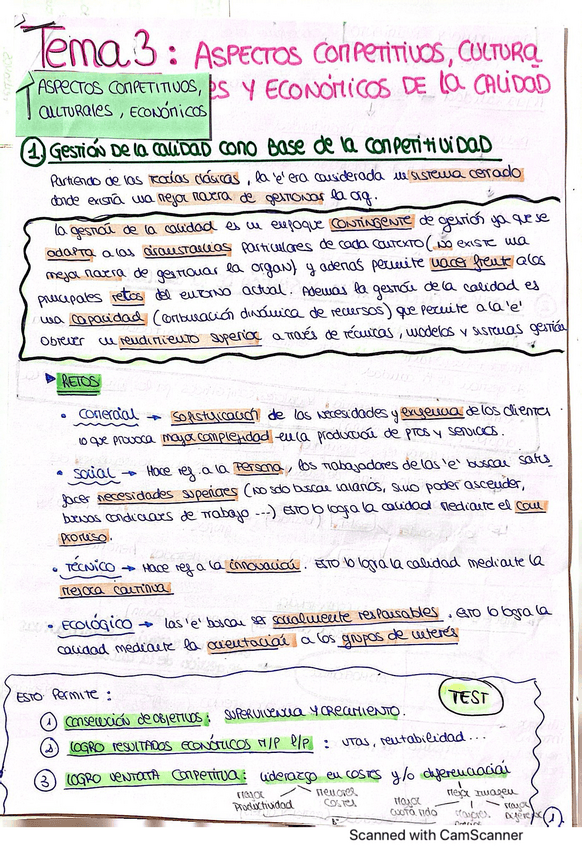 Tema 3: ASPECTOS COMPETITIVOS, CULTURA
ES Y ECONÓMICOS DE LA CALIDAD
ASPECTOS COMPETITIVOS,
CULTURALES, ECONÓMICOS
① GESTIÓN DE LA CALIDAD COMO BASE DE LA COMPETITIVIDAD
Partiendo de las teorías clásicas, la 'e' era considerada un sistema cerrado
donde existía una mejor manera de gestionar la org.
La gestión de la calidad es un enfoque CONTINGENTE de gestión ya que se
adapta a las circunstancias particulares de cada contexto (no existe una
mejor manera de gestionar la organ) y además permite hacer frente a los
principales retos del entorno actual. Además la gestión de la calidad es
una capacidad (combinación dinámica de recursos) que permite a la 'e'
obtener un rendimiento superior a través de técnicas, modelos y sistemas gestión
RETOS
• Comercial → sofisticación de las necesidades y exigencia de los clientes
lo que provoca mayor complejidad en la producción de ptos y servicios.
• Social → Hace ref. a la Persona, los trabajadores de las 'e' buscan satis
facer necesidades superiores (no sólo buscan salarios, sino poder ascender,
buenas condiciones de trabajo ...) Esto lo logra la calidad mediante el com
promiso.
• TÉCNICO → Hace ref a la innovación. Esto lo logra la calidad mediante la
mejora continua
• ECOLÓGICO → las 'e' buscan ser socialmente responsables. Esto lo logra la
calidad mediante la orientación a los grupos de interés
ESTO PERMITE:
TEST
① CONSECUCIÓN DE OBJETIVOS: SUPERVIVENCIA Y CRECIMIENTO.
② LOGRO RESULTADOS ECONÓMICOS M/P L/P: VTAS, rentabilidad...
③ LOGRO VENTAJA COMPETITIVA: liderazgo en costes y/o diferenciación
mayor Productividad
menores costes
mayor cuota mdo
mejor imagen
mayores
①
Scanned with CamScanner